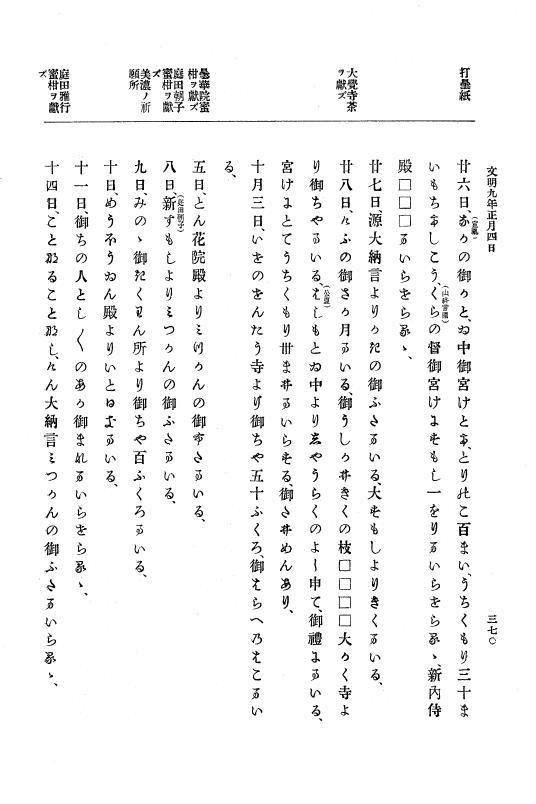 文明九年正月四日
三七〇
打曇紙
大覺寺茶
ヲ獻ズ
曇華院蜜
柑ヲ獻ズ
庭田朝子
蜜柑ヲ獻
ズ
美濃ノ祈
願所
庭田雅行
蜜柑ヲ獻
ズ
廿六日、あかの御かと、ゐ中御宮けとて、とりのこ百まい、うちくもり三十ま
いもちてしこう、くらの督御宮けにすもし一をりまいらせらるゝ、新內侍
殿□□□まいらせらるゝ、
廿七日、源大納言よりかたの御ふさまいる、大すもしよりきくまいる、
廿八日、けふの御さか月まいる、御うしか井きくの枝□□□□大かく寺よ
り御ちやまいる、はしもとゐ中より志やうらくのよし申て、御禮にまいる、
宮けにとてうちくもり卅まい井まいらする、御さ井めんあり、
十月三日、いせのせんたう寺より御ちや五十ふくろ、御はらへのはこまい
る、
五日、とん花院殿よりみつかんの御ふさまいる、
八日、新すもしよりみつかんの御ふさまいる、
九日、みのゝ御たくはん所より御ちや百ふくろまいる、
十日、めうふうゐん殿よりいとはすまいる、
十一日、御ちの人としく〳〵のあか御まれまいらせらるゝ、
十四日、ことなることなし、けん大納言みつかんの御ふさまいらるゝ、